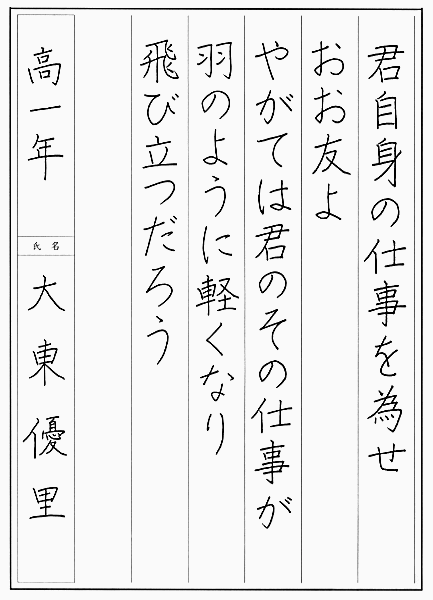 君自身の仕事を為せ
おお友よ
やがては君のその仕事が
羽のように軽くなり
飛び立つだろう
高一年
氏名
大東優里